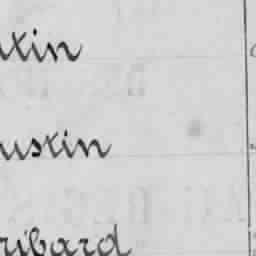 tin
ustin
ribard